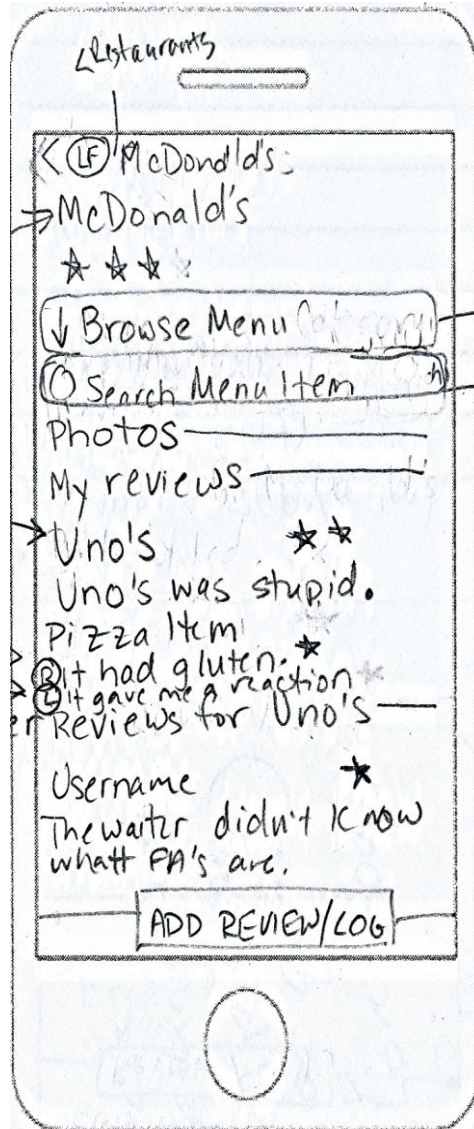 <Restaurants
< LF McDonald's
McDonald's
↓ Browse Menu
Search Menu Item
Photos
My reviews
Uno's
Uno's was stupid.
Pizza Item
R it had gluten.
L it gave me a reaction
Reviews for Uno's
Username
The waiter didn't know
whatt FA's are.
ADD REVIEW/LOG